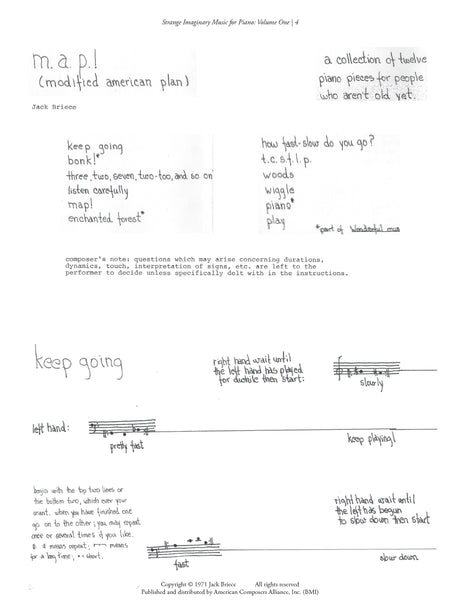 Strange Imaginary Music for Piano: Volume One | 4
m. a. p.!
(modified american plan)
Jack Briece
a collection of twelve
piano pieces for people
who aren't old yet.
keep going
bonk!*
three, two, seven, two-too, and so on
listen carefully
map!
enchanted forest*
how fast-slow do you go?
t.c.s.f.l.p.
woods
wiggle
piano*
play
*part of Wonderful mus
composer's note: questions which may arise concerning durations,
dynamics, touch, interpretation of signs, etc. are left to the
performer to decide unless specifically delt with in the instructions.
keep going
right hand wait until
the left hand has played
for awhile then start:
slowly
left hand:
pretty fast
keep playing!
begin with the top two lines or
the bottom two, which ever your
want. when you have finished one
go on to the other; you may repeat
once or several times if you like.
means repeat; means
for a long time; = short.
right hand wait until
the left has begun
to slow down then start
fast
slow down
Copyright © 1971 Jack Briece All rights reserved
Published and distributed by American Composers Alliance, Inc. (BMI)